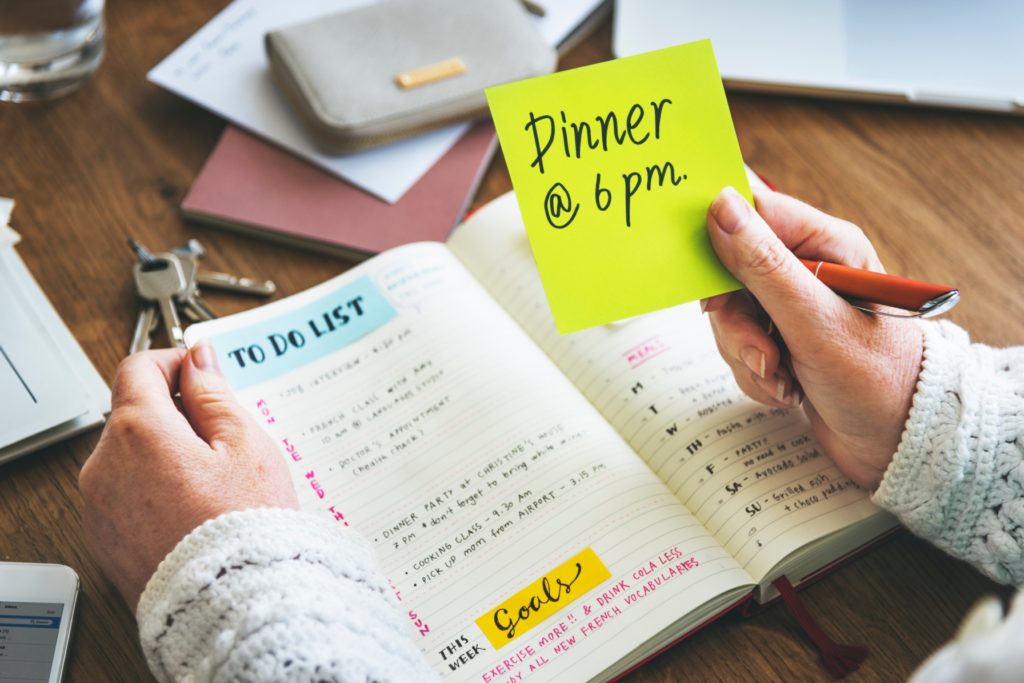 Dinner
@ 6 pm.
TO DO LIST
MON
TUE
WED
THU
SUN
JOB INTERVIEW - 4:20 PM
• FRENCH CLASS WITH AMY
10 AM @ LANGUAGES STUDIO
• DOCTOR'S APPOINTMENT
(health check)
• DINNER PARTY AT CHRISTINE'S HOUSE
7 PM * don't forget to bring white wine
• COOKING CLASS - 9.30 AM
• PICK UP MOM FROM AIRPORT - 3.15 PM
THIS
WEEK
Goals
EXERCISE MORE!! & DRINK COLA LESS
ALL NEW FRENCH VOCABULARIES
MEALS
M
T
W - Roasted
TH - Pasta with
F - PARTY!
no need to cook
SA - Avocado Salad
SU - Grilled fish
+ choco pudding